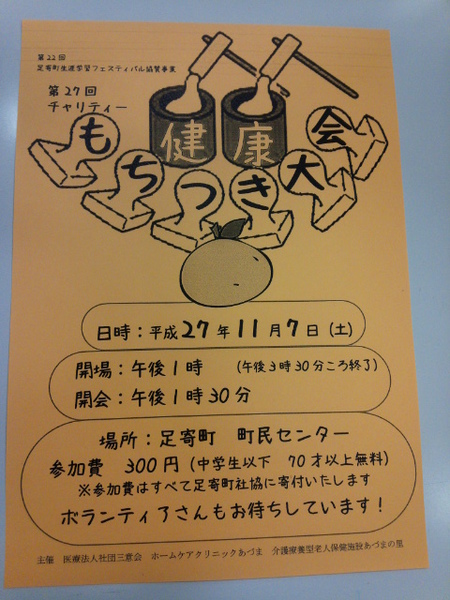 第22回
足寄町生涯学習フェスティバル協賛事業
第27回
チャリティー
健康
もちつき大会
日時：平成27年11月7日（土）
開場：午後1時　（午後3時30分ころ終了）
開会：午後1時30分
場所：足寄町　町民センター
参加費　300円（中学生以下　70才以上無料）
※参加費はすべて足寄町社協に寄付いたします
ボランティアさんもお待ちしています！
主催　医療法人社団三意会　ホームケアクリニックあづま　介護療養型老人保健施設あづまの里